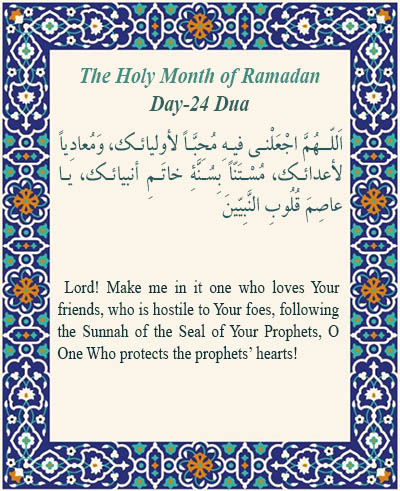 The Holy Month of Ramadan
Day-24 Dua
اَللّـهُمَّ اجْعَلْنـى فيـهِ مُحِبَّـاً لأوليائـكَ، وَمُعادِياً
لأعدائـكَ، مُسْـتَنّاً بِسُـنَّةِ خاتَـمِ أنبيائـكَ، يـا
عاصِمَ قُلُوبِ النَّبِيّينَ
Lord! Make me in it one who loves Your
friends, who is hostile to Your foes, following
the Sunnah of the Seal of Your Prophets, O
One Who protects the prophets’ hearts!